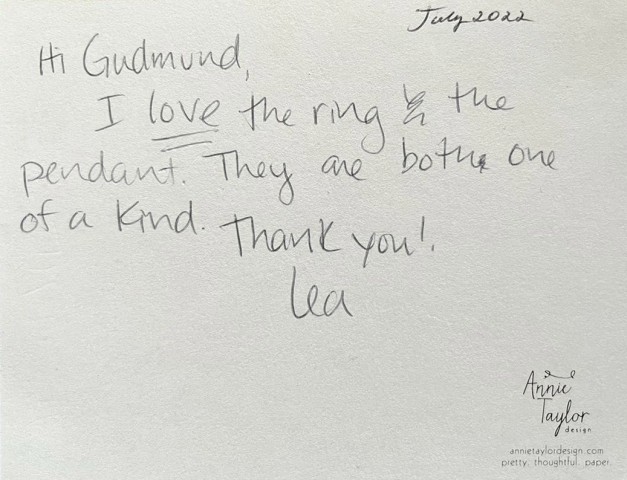 July 2022
Hi Gudmund,
I love the ring & the
pendant. They are both one
of a kind. Thank you!
Lea
Annie
Taylor
design
annietaylordesign.com
pretty. thoughtful. paper.